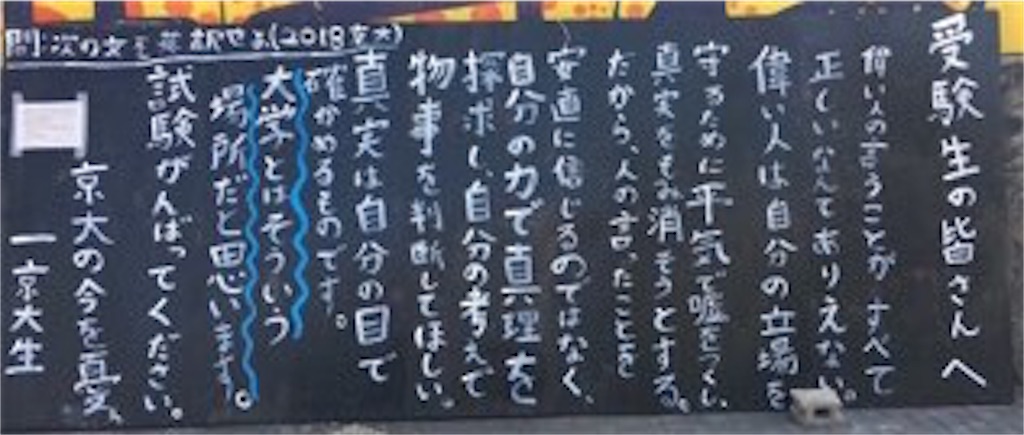 受験生の皆さんへ
偉い人の言うことがすべて
正しいなんてありえない。
偉い人は自分の立場を
守るために平気で嘘をつくし、
真実をもみ消そうとする。
だから、人の言ったことを
安直に信じるのではなく、
自分の力で真理を
探求し、自分の考えで
物事を判断してほしい。
真実は自分の目で
確かめるものです。
大学とはそういう
場所だと思います。
試験がんばってください。
京大の今を憂う、
一京大生
問.次の文を英訳せよ(2018京大)